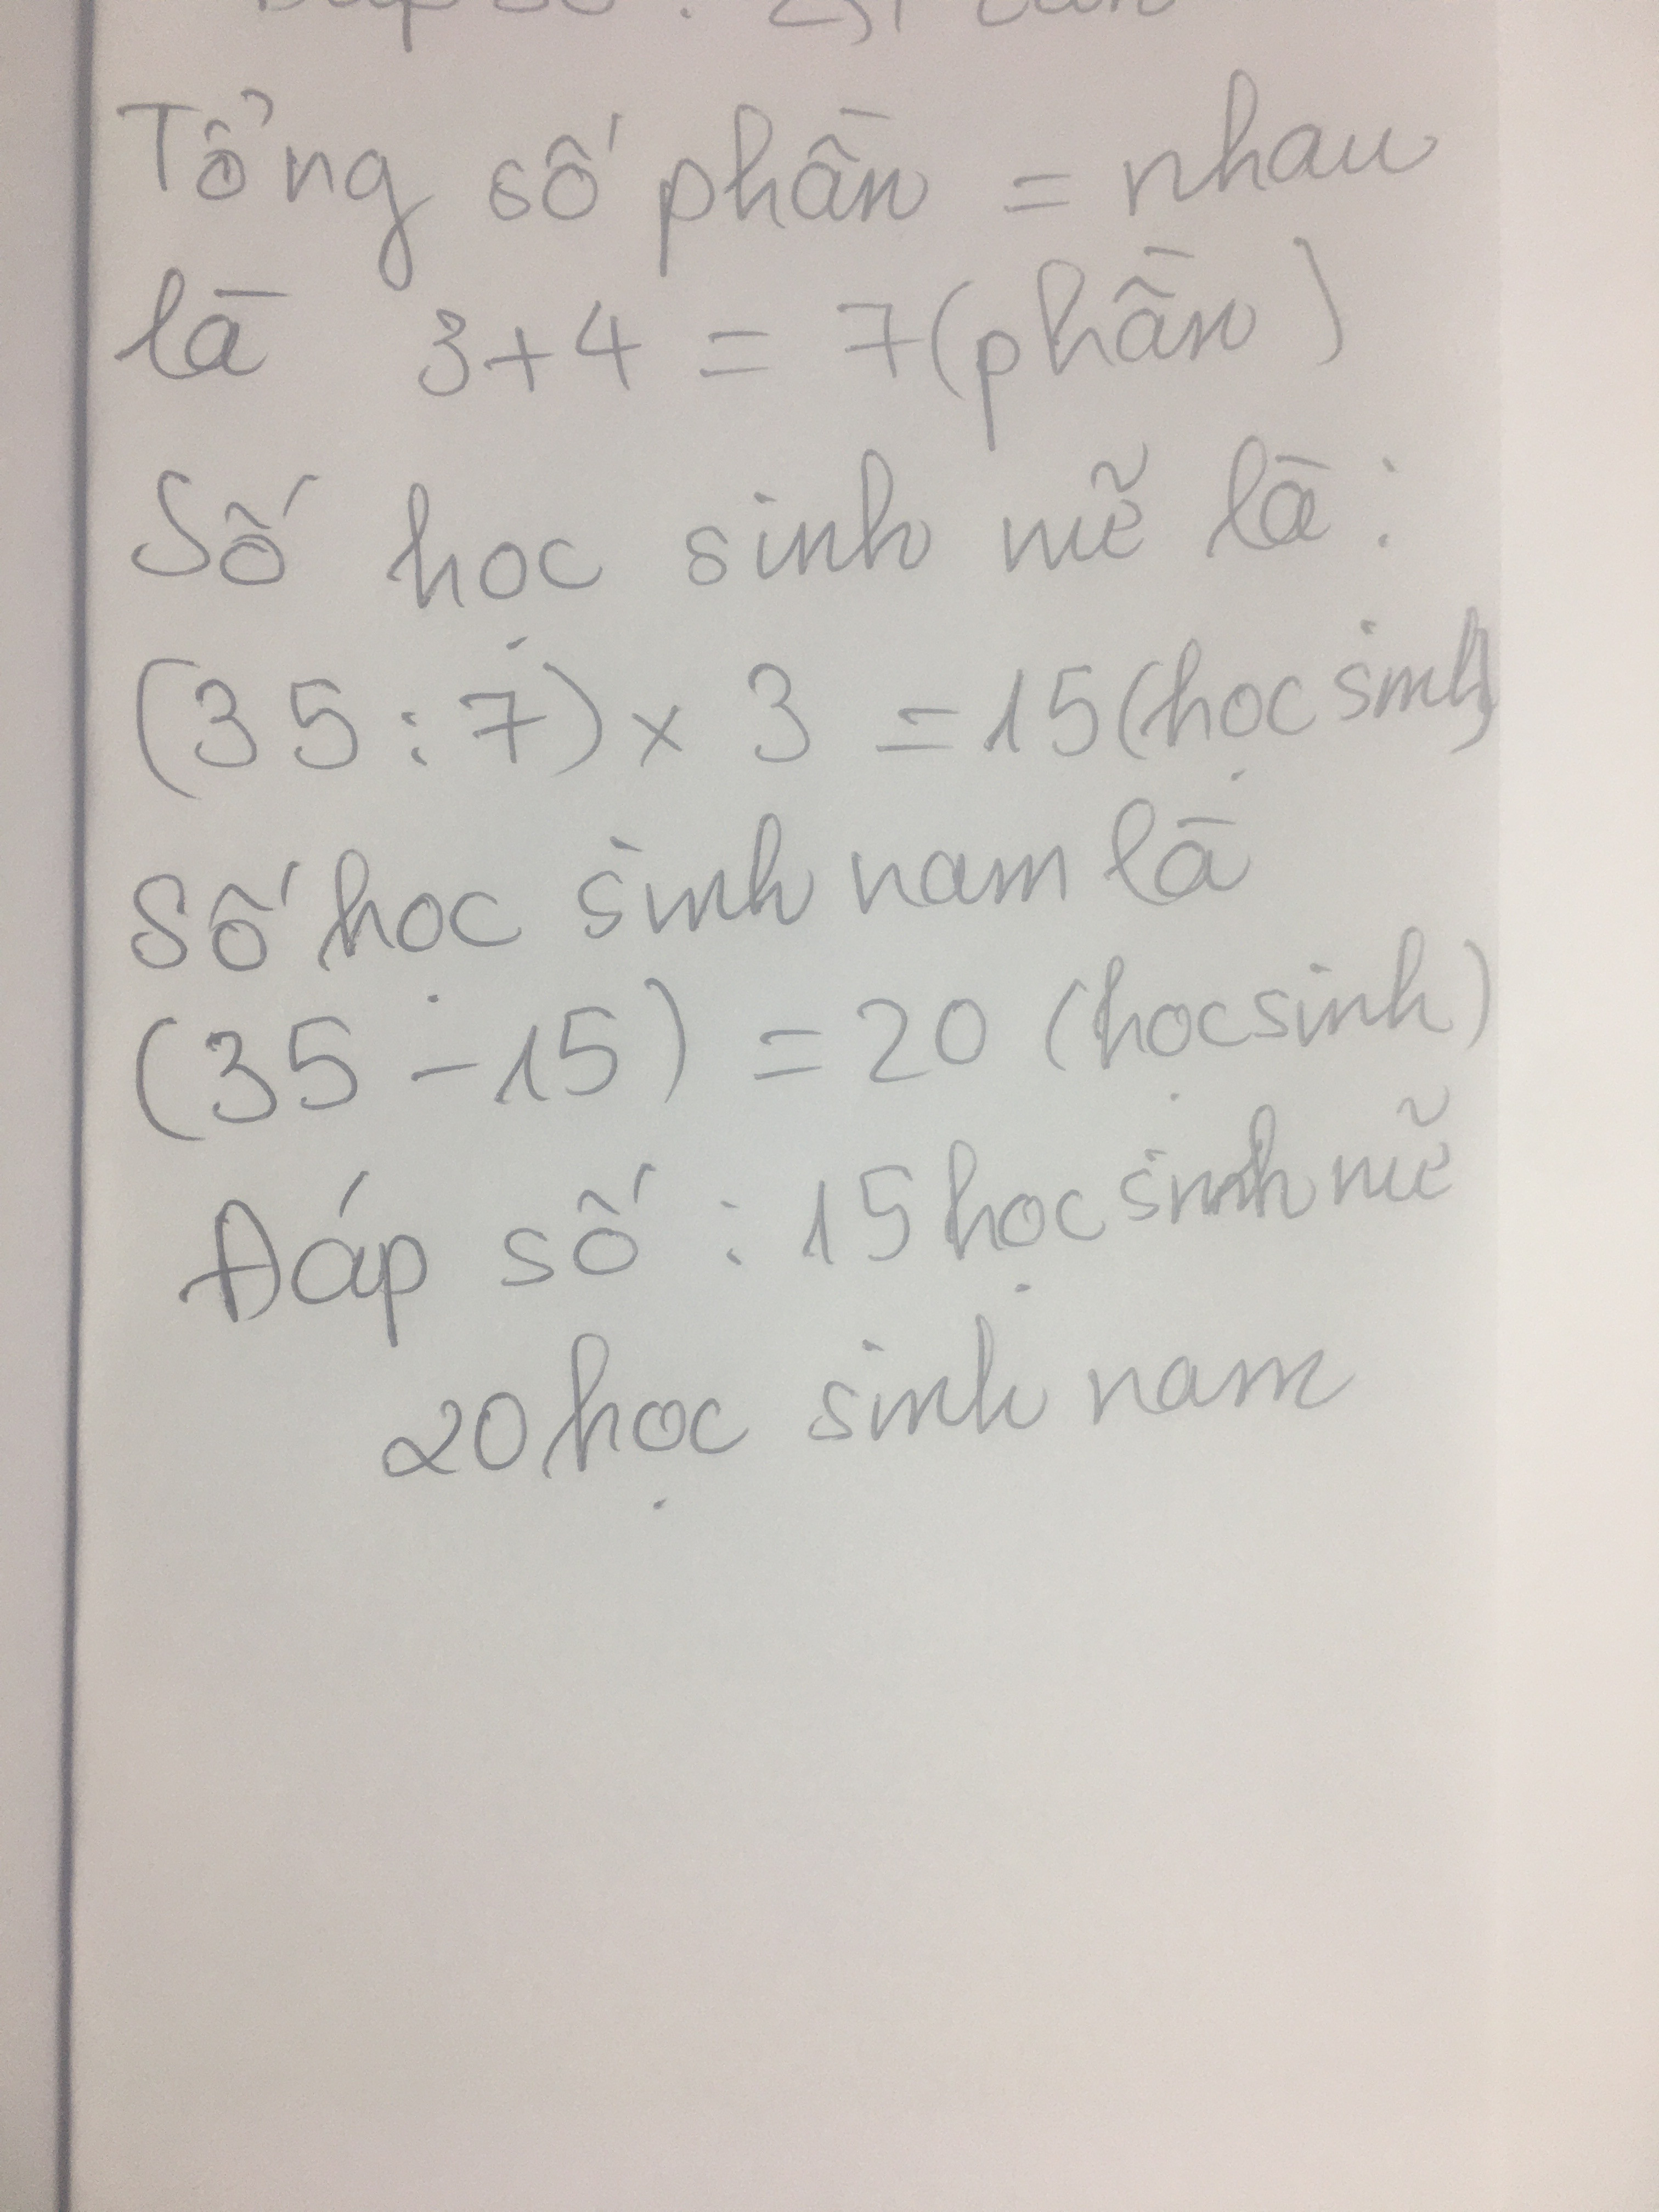 Tổng số phần = nhau
là 3+4 = 7(phần)
Số học sinh nữ là:
(35:7) x 3 = 15(học sinh)
Số học sinh nam là
(35-15) = 20 (học sinh)
Đáp số : 15 học sinh nữ
20 học sinh nam